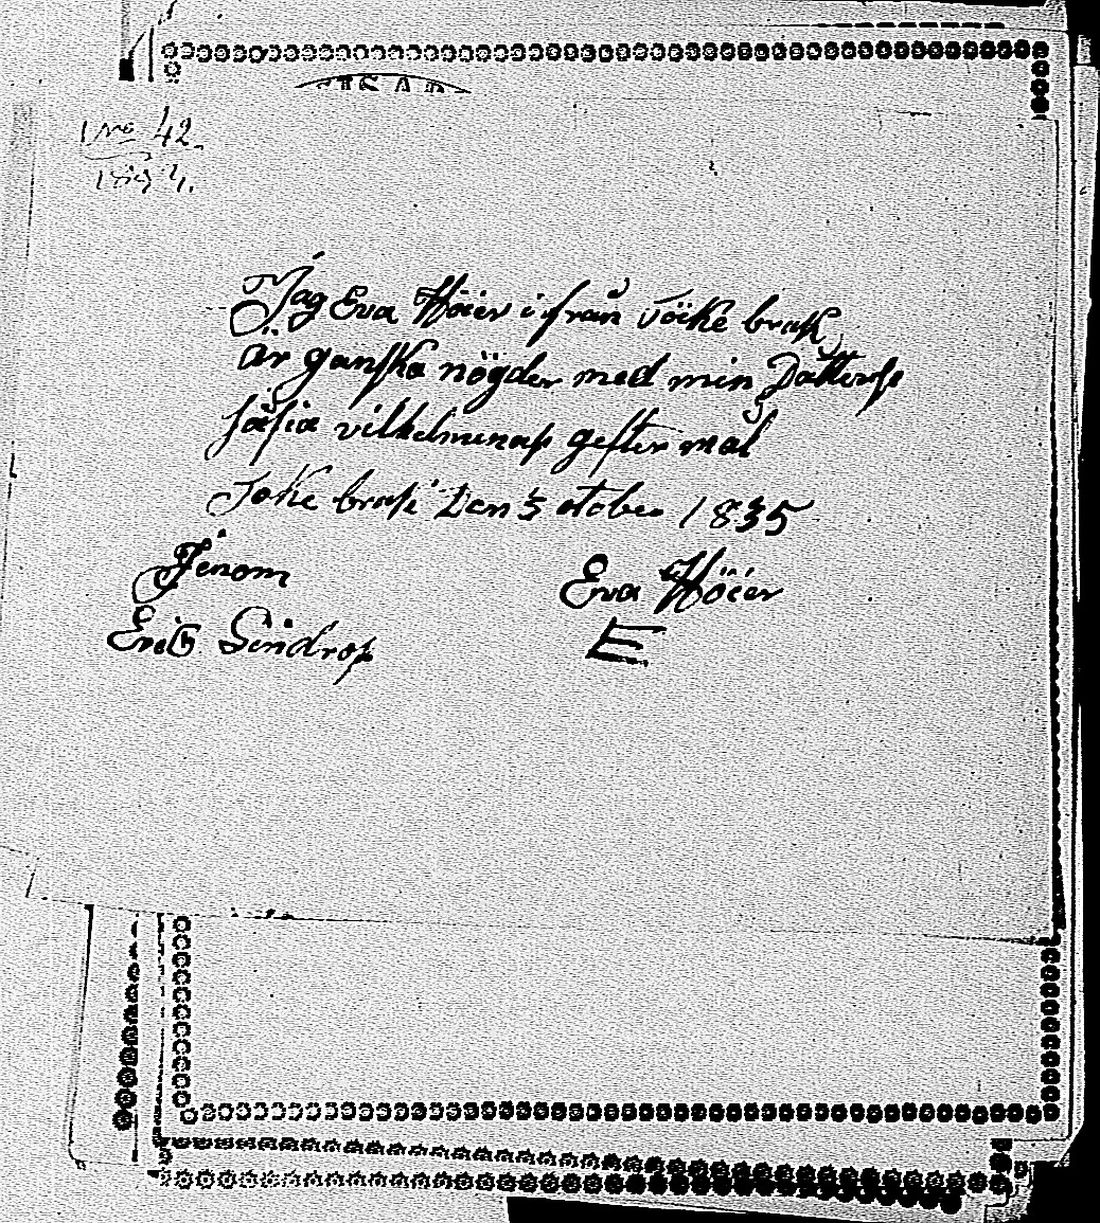 No 42.
Jag Eva Höier ifrån Töcke bruk
är ganska nögder med min Dåtters
såfia vilhelminas gefter mål
Töke bruk Den 3 otober 1835
Jenom
Eva Höier
Erich Lindros
E